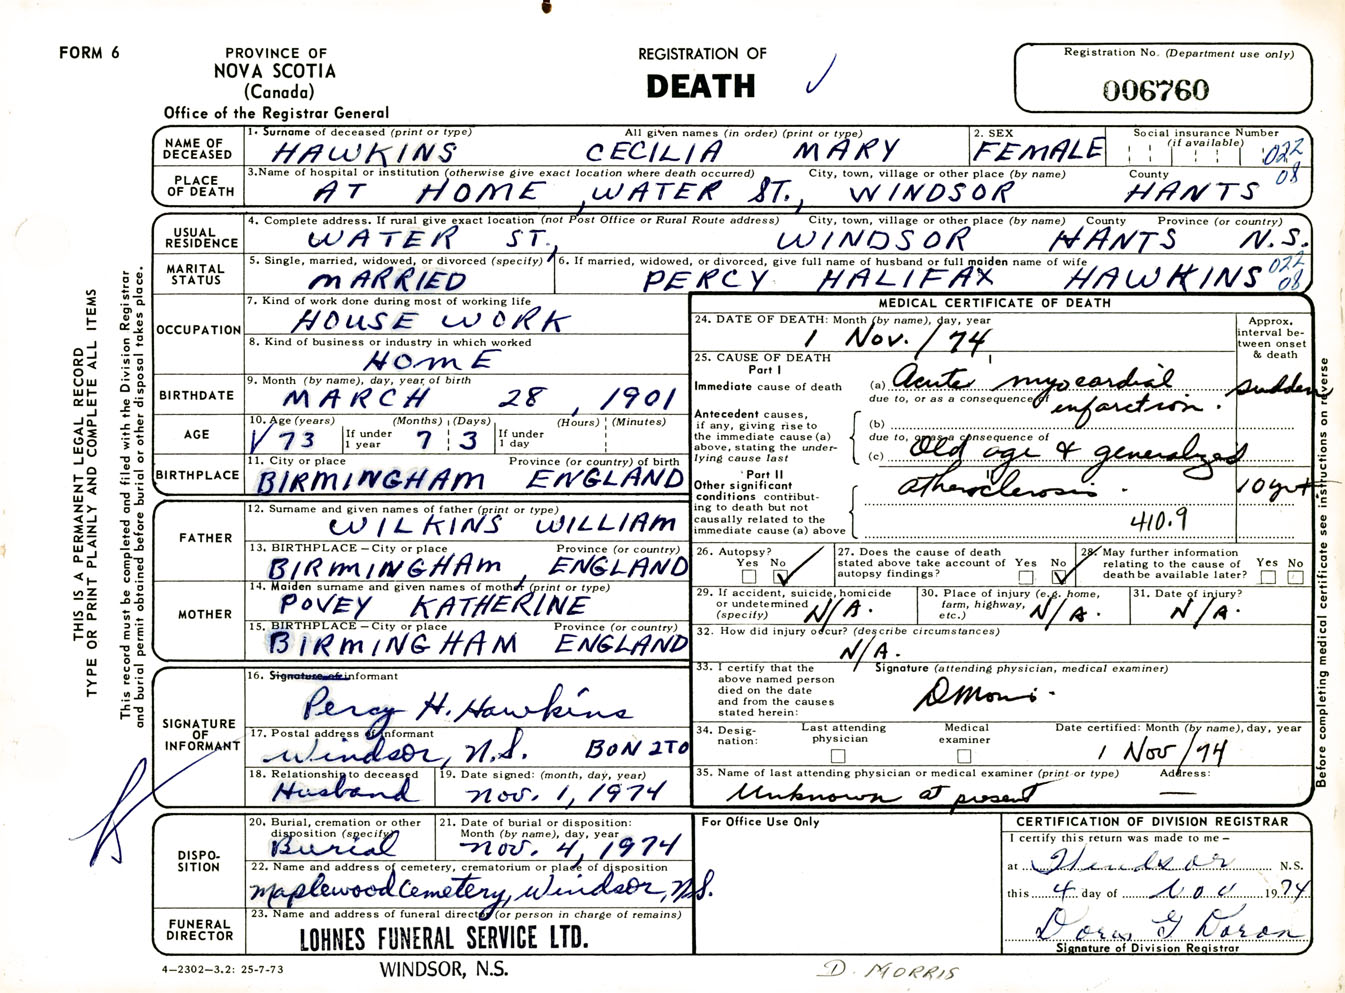 FORM 6
PROVINCE OF
NOVA SCOTIA
(Canada)
Office of the Registrar General
REGISTRATION OF
DEATH
Registration No. (Department use only)
006760
NAME OF DECEASED
1. Surname of deceased (print or type) All given names (in order) (print or type)
HAWKINS CECILIA MARY
2. SEX
FEMALE
Social insurance Number
(if available)
022
08
PLACE OF DEATH
3. Name of hospital or institution (otherwise give exact location where death occurred) City, town, village or other place (by name) County
AT HOME, WATER ST., WINDSOR HANTS
USUAL RESIDENCE
4. Complete address. If rural give exact location (not Post Office or Rural Route address) City, town, village or other place (by name) County Province (or country)
WATER ST., WINDSOR HANTS N.S.
MARITAL STATUS
5. Single, married, widowed, or divorced (specify)
MARRIED
6. If married, widowed, or divorced, give full name of husband or full maiden name of wife
PERCY HALIFAX HAWKINS
022
08
OCCUPATION
7. Kind of work done during most of working life
HOUSE WORK
8. Kind of business or industry in which worked
HOME
BIRTHDATE
9. Month (by name), day, year, of birth
MARCH 28, 1901
AGE
10. Age (years) (Months) (Days) (Hours) (Minutes)
73 If under 1 year 7 3 If under 1 day
BIRTHPLACE
11. City or place Province (or country) of birth
BIRMINGHAM ENGLAND
FATHER
12. Surname and given names of father (print or type)
WILKINS WILLIAM
13. BIRTHPLACE – City or place Province (or country)
BIRMINGHAM, ENGLAND
MOTHER
14. Maiden surname and given names of mother (print or type)
POVEY KATHERINE
15. BIRTHPLACE – City or place Province (or country)
BIRMINGHAM ENGLAND
SIGNATURE OF INFORMANT
16. Signature of informant
Percy H. Hawkins
17. Postal address of informant
Windsor, N.S. BON 2TO
18. Relationship to deceased
Husband
19. Date signed: (month, day, year)
Nov. 1, 1974
DISPO-
SITION
20. Burial, cremation or other disposition (specify)
Burial
21. Date of burial or disposition: Month (by name), day, year
Nov. 4, 1974
22. Name and address of cemetery, crematorium or place of disposition
Maplewood Cemetery, Windsor, N.S.
FUNERAL DIRECTOR
23. Name and address of funeral director (or person in charge of remains)
LOHNES FUNERAL SERVICE LTD.
WINDSOR, N.S.
4–2302–3.2: 25-7-73
MEDICAL CERTIFICATE OF DEATH
24. DATE OF DEATH: Month (by name), day, year
1 Nov. / 74
Approx. interval between onset & death
25. CAUSE OF DEATH
Part I
Immediate cause of death
(a) Acute myocardial sudden
due to, or as a consequence of
infarction.
Antecedent causes, if any, giving rise to the immediate cause (a) above, stating the underlying cause last
(b)
due to, or as a consequence of
(c) Old age & generalized
Part II
Other significant conditions contributing to death but not causally related to the immediate cause (a) above
atherosclerosis. 10 yr+.
410.9
26. Autopsy?
Yes No
27. Does the cause of death stated above take account of autopsy findings?
Yes No
28. May further information relating to the cause of death be available later?
Yes No
29. If accident, suicide, homicide or undetermined (specify)
N/A.
30. Place of injury (e.g. home, farm, highway, etc.)
N/A.
31. Date of injury?
N/A.
32. How did injury occur? (describe circumstances)
N/A.
33. I certify that the above named person died on the date and from the causes stated herein:
Signature (attending physician, medical examiner)
34. Designation:
Last attending physician
Medical examiner
Date certified: Month (by name), day, year
1 Nov / 74
35. Name of last attending physician or medical examiner (print or type) Address:
Unknown at present —
For Office Use Only
CERTIFICATION OF DIVISION REGISTRAR
I certify this return was made to me –
at Windsor N.S.
this 4 day of Nov 1974
Dora G Doran
Signature of Division Registrar
D. MORRIS
THIS IS A PERMANENT LEGAL RECORD
TYPE OR PRINT PLAINLY AND COMPLETE ALL ITEMS
This record must be completed and filed with the Division Registrar
and burial permit obtained before burial or other disposal takes place.
Before completing medical certificate see instructions on reverse